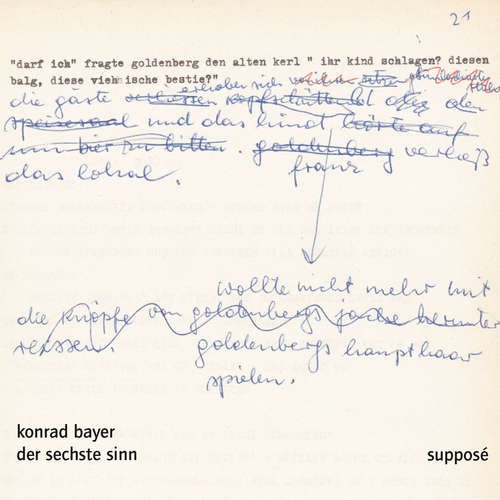 21
"darf ich" fragte goldenberg den alten kerl " ihr kind schlagen? diesen
balg, diese viehische bestie?"
erhoben sich von ihren sitzen
die gäste verliessen kopfschüttelnd den
speisesaal und das kind, hörte auf
um bier zu bitten. goldenberg verließ
das lokal. franz
wollte nicht mehr mit
die knöpfe von goldenbergs jacke herunter
reissen. goldenbergs haupthaar
spielen.
konrad bayer
der sechste sinn
supposé